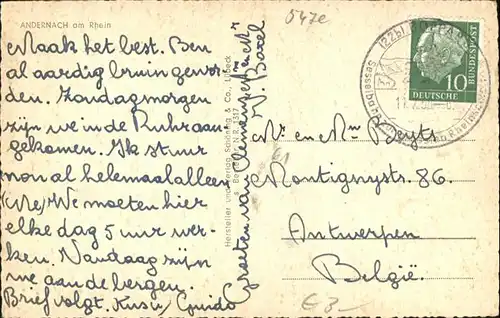 ANDERNACH am Rhein
547e
Maak het best. Ben
al aardig bruin gewor-
den. Zondagmorgen
zijn we in de Ruhr aan
gekomen. Ik stuur
non al helemaal alleen
We moeten hier
elke dag 5 uur wer-
ken. Vandaag zijn
we aan de bergen.
Brief volgt. Kusje Guido
Groeten van
Hersteller und Verlag Schöning & Co., Lübeck
(22b)
10
DEUTSCHE
BUNDESPOST
Mr en Mm Beyts
61
Montignystr. 86.
Antwerpen
België.
€ 3-